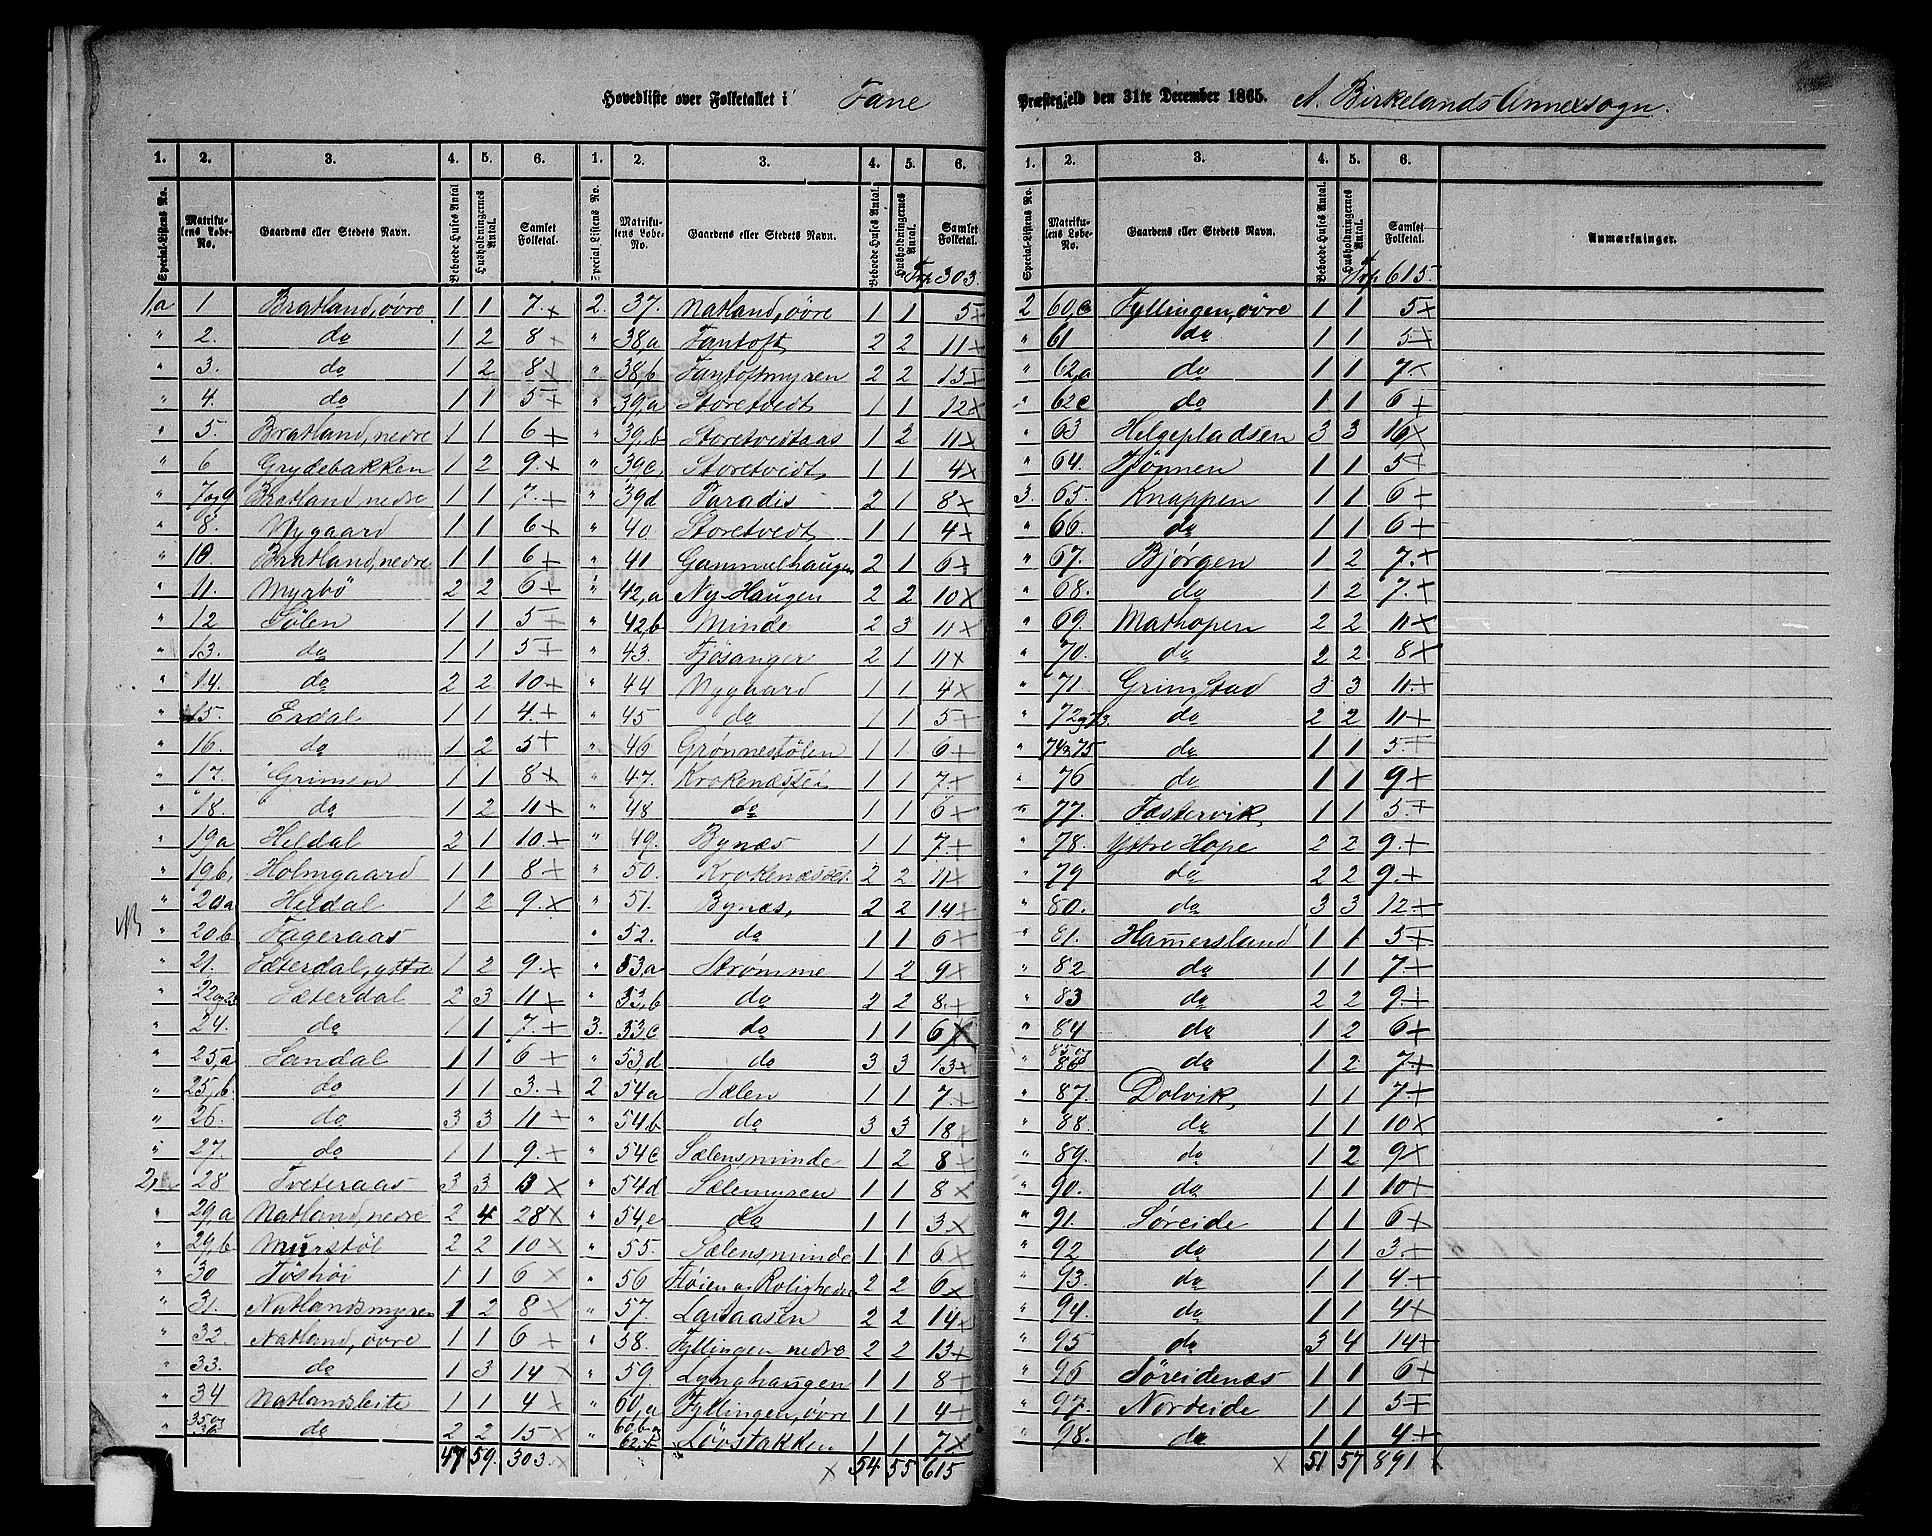 Hovedliste over Folketallet i Fane Præstegjeld den 31te December 1865. A. Birkelands Annexsogn.
1. 2. 3. 4. 5. 6. 1. 2. 3. 4. 5. 6.
Special-Listens No. Matrikulens Løbe-No. Gaardens eller Stedets Navn. Beboede Huses Antal Husholdningernes Antal. Samlet Folketal. Special-Listens No. Matrikulens Løbe-No. Gaardens eller Stedets Navn. Beboede Huses Antal. Husholdningernes Antal. Samlet Folketal.
Trp 303.
1,a 1 Bratland, øvre 1 1 7.x
" 2. do 1 2 8 x
" 3. do 1 2 8 x
" 4. do 1 1 5 +
" 5. Bratland, nedre 1 1 6 +
" 6 Grydebakken 1 2 9.x
" 7og9 Bratland, nedre 1 1 7.+
" 8. Nygaard 1 1 6 x
" 10. Bratland, nedre 1 1 6 +
" 11. Myrbö 2 2 6 +
" 12 Sølen 1 1 5
" 13. do 1 1 5 +
" 14. do 2 2 10.+
" 15. Erdal 1 1 4.+
" 16. do 1 2 5 +
" 17. Grimen 1 1 8 x
" 18. do 1 2 11 x
" 19a Heldal 2 1 10.+
" 19b, Holmgaard 1 1 8 +
" 20a Heldal 1 2 9.x
NB " 20b Fageraas
" 21. Sæterdal, yttre 1 2 9.x
" 22og23 Sæterdal 2 3 11 +
" 24. do 1 1 7.+
" 25,a Sandal 1 1 6 +
" 25,b. do 1 1 3.+
" 26. do 3 3 11 +
" 27. do 1 1 9.x
2, 28 Tveteraas 3 3 13 x
" 29,a Natland, nedre 2 4 28 x
" 29,b Murstöl 2 2 10 x
" 30 1 1 6 x
" 31. Natlandsmyren 1 2 8 x
" 32. Natland, øvre 1 1 6 x
" 33. do 1 3 14 x
" 34 Natlandsleite 1 1 4 x
" 35og36 do 2 2 15 x
47 59. 303.x
2. 37. Natland, øvre 1 1 5
" 38,a Fantoft, 2 2 11 x
" 38,b Fantoftmyren 2 2 13
" 39,a Storetvedt 1 1 12x
" 39,b Storetvedtaas 1 2 11 x
" 39c, Storetvedt, 1 1 4x
" 39d Paradis 2 1 8 x
" 40 Storetvedt 1 1 4 x
" 41 Gammelhaugen 2 1 6 +
" 42,a Ny-Haugen 2 2 10 x
" 42,b Minde 2 3 11 x
" 43. Fjösanger 2 1 11x
" 44 Nygaard 1 1 4 x
" 45 do 1 1 5 +
" 46 Grønnestølen 1 1 6 +
" 47. Krokenæsset 1 1 7.+
" 48 do 1 1 6 +
" 49. Bynæs 1 1 7.+
" 50. Krokenæsset. 2 2 11 x
" 51. Bynæs, 2 2 14 +
" 52. do 1 1 6 +
" 53,a Strømme 1 2 9 x
" 53,b do 2 2 8.+
3. 53,c do 1 1 6 x
" 53,d do 3 3 13x
2 54a Sælen 1 1 7 +
" 54b do 3 3 18 x
" 54c Sælensminde 1 2 8 x
" 54d Sælemyren 1 1 8 x
" 54,e do 1 1 3 x
" 55. Sælensminde 1 1 6 x
" 56 Fløien og Roligheden 2 2 6 x
" 57. Laraasen 2 2 14x
" 58. Fyllingen nedre 2 2 13 +
" 59 Lynghaugen 1 1 8 +
" 60,a Fyllingen, øvre 1 1 4 +
" Løvstakken 1 1 7.x
x 54 55 615
1. 2. 3. 4. 5. 6.
Special-Listens No. Matrikulens Løbe-No. Gaardens eller Stedets Navn. Beboede Huses Antal. Husholdningernes Antal. Samlet Folketal. Anmærkninger.
Trp 615.
2 60,c Fyllingen, øvre 1 1 5 x
" 61 do 1 1 5 x
" 62,a do 1 1 7.x
" 62c do 1 1 6 +
" 63 Helgepladsen 3 3 16x
" 64. Tjönnen 1 1 5 +
3. 65. Knappen 1 1 6 +
" 66. do 1 1 6 +
" 67. Bjørgen 1 2 7.x
" 68. do 1 2 7.x
" 69. Mathopen 2 2 11 x
" 70. do 2 2 8x
" 71. Grimstad 3 3 11.+
" 72og73. do 2 2 11 +
" 74og75 do 1 1 5.+
" 76 do 1 1 9 +
" 77. Fæstervik, 1 1 5.+
" 78. Yttre Hope 2 2 9.+
" 79 do 2 2 9.+
" 80. do 3 3 12.+
" 81. Hamersland 1 1 5 +
" 82 do 1 1 7.+
" 83 do 2 2 9.+
" 84 do 1 2 6 +
" 85og86 do 1 2 7.+
" 87. Dolvik, 1 1 7 +
" 88. do 1 1 10x
" 89. do 1 2 9x
" 90. do 1 1 10 +
" 91. Søreide 1 1 6 +
" 92 do 1 1 3.+
" 93. do 1 1 4 +
" 94. do 1 1 4x
" 95 do 3 4 14 +
" 96 Søreidenæs 1 1 6 +
" 97. Nordeide 1 1 5 +
" 98. do 1 1 4.+
x 51 57 891 x